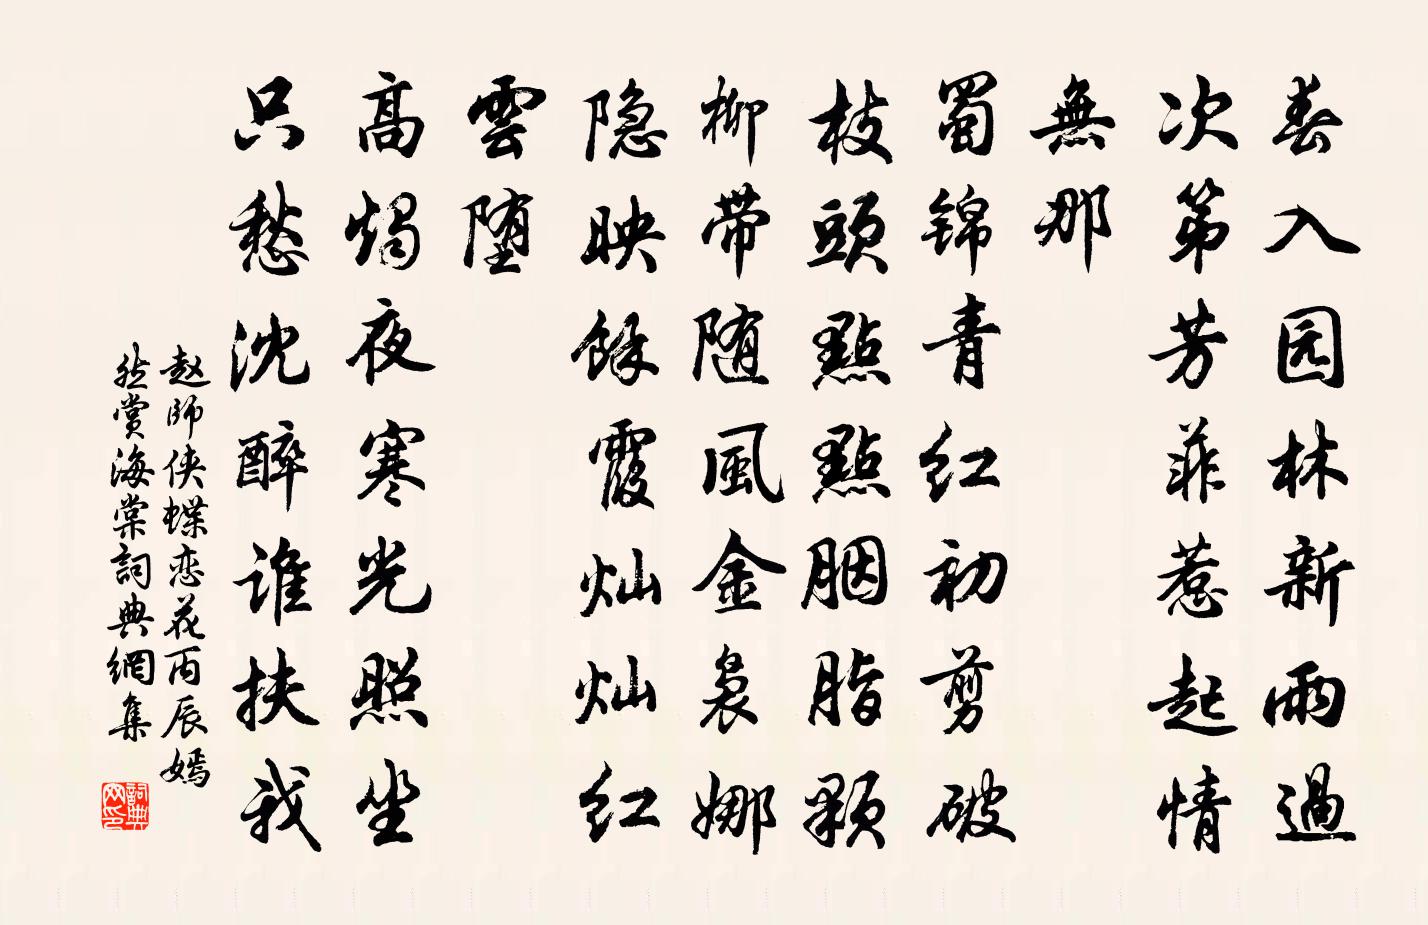 春入园林新雨過
次第芳菲惹起情
無那
蜀锦青红初剪破
枝頭點點胭脂顆
柳带随風金裊娜
隐映餘霞灿灿红
雲堕
高燭夜寒光照坐
只愁沈醉谁扶我
赵師侠蝶恋花丙辰嫣
然赏海棠詞典網集
詞典
网印